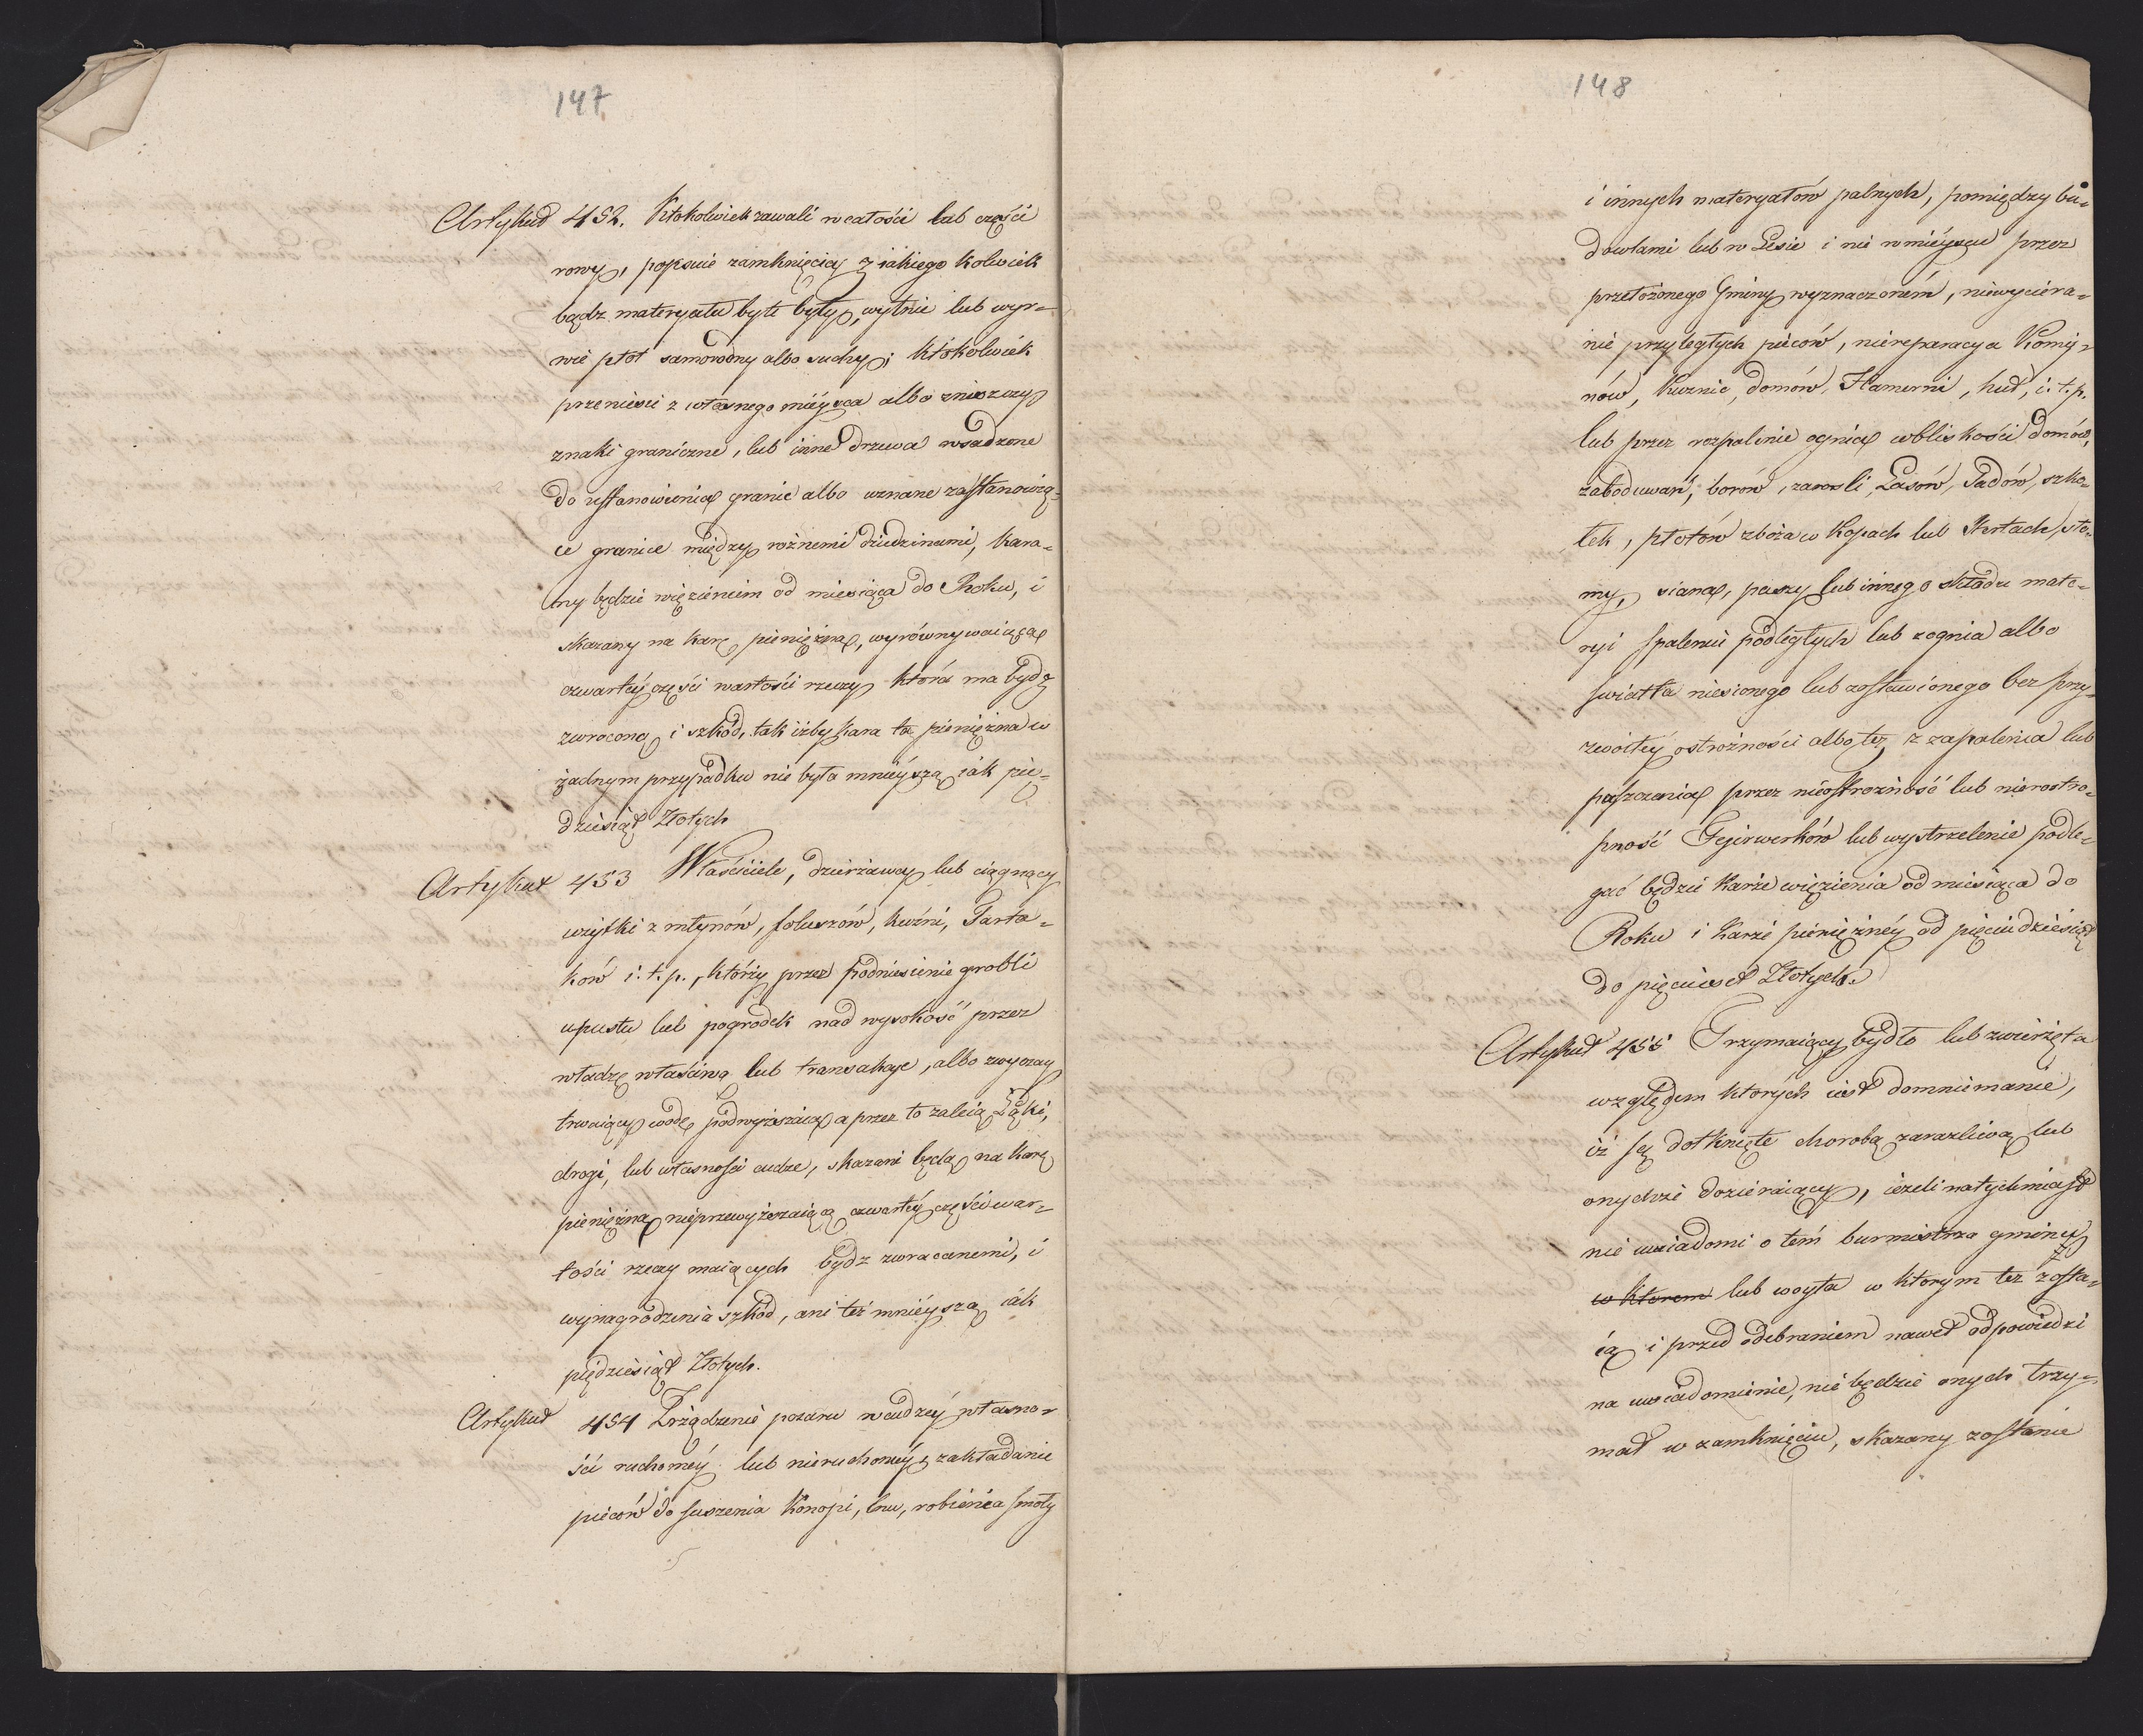 147
Artykuł 452. Ktokolwiek zawali w całości lub części
rowy, popsuie zamknięcia z iakiego kolwiek
bądz materyału byle były, wytnie lub wyr-
wie płot samorodny albo suchy; ktokolwiek
przeniesie z własnego mieysca albo zniszczy
znaki graniczne, lub inne drzewa wsadzone
do ustanowienia granic albo uznane za stanowią-
ce granice między rożnemi dziedzinami, kara-
ny będzie więzieniem od miesiąca do Roku, i
skazany na karę pieniężną, wyrównywaiącą
czwartéy części wartości rzeczy która ma bydz
zwrocona i szkód, tak iżby kara ta pieniężna w
żadnym przypadku nie była mnieyszą iak pię-
dziesiąt Złotych
Artykuł 453 Właściciele, dzierżawcy lub ciągnący
użytki z młynów, foluszów, kuźni, Tarta-
ków i. t. p., którzy przez podniesienie grobli
upustu lub pogrodek nad wysokość przez
władzę właściwą lub transakcye, albo zwyczay
trwaiący wodę podwyższaią a przez to zaleią Łąki,
drogi, lub własności cudze, skazani będą na karę
pieniężną nieprzewyższaiącą czwartéy części war-
tości rzeczy maiących bydz zwracanemi, i
wynagrodzenia szkód, ani też mnieyszą iak
piędziesiąt Złotych.
Artykuł 454 Zrządzenie pożaru w cudzéy własno-
ści ruchoméy lub nieruchoméy, zakładanie
pieców do suszenia Konopi, lnu, robienia smoły
148
i innych materyałów palnych, pomiędzy bu-
dowlami lub w Lesie i nie w mieyscu przez
przełożonego Gminy wyznaczoném, niewyciera-
nie przyległych pieców, niereparacya Komi-
nów, kuznic, domów, Hamerni, hut, i. t. p.
lub przez rozpalenie ognia w bliskości domów,
zabuduwań, borów, zarosli, Lasów, Sadów, szko-
łek, płotów zboża w Kopach lub Stertach, sło-
my, siana, paszy lub innego składu mate-
ryi spaleniu podległych lub z ognia albo
światła niesionego lub zostawionego bez przy-
zwoitéy ostrożności albo też z zapalenia lub
puszczenia przez nieostrożność lub nierostro-
pność Fejerwerków lub wystrzelenie podle-
gać będzie karze więzienia od miesiąca do
Roku i karze pieniężnéy od pięciudziesiąt
do pięciuset Złotych.
Artykuł 455 Trzymaiący bydło lub zwierzęta
względem których iest domniemanie,
iż są dotknięte chorobą zarazliwą lub
onychże dozieraiący, ieżeli natychmiast
nie uwiadomi o tém burmistrza gminy
w ktorem lub woyta w ktorym też zosta-
ią i przed odebraniem nawet odpowiedzi
na uwiadomienie, nie będzie onych trzy-
mał w zamknięciu, skazany zostanie